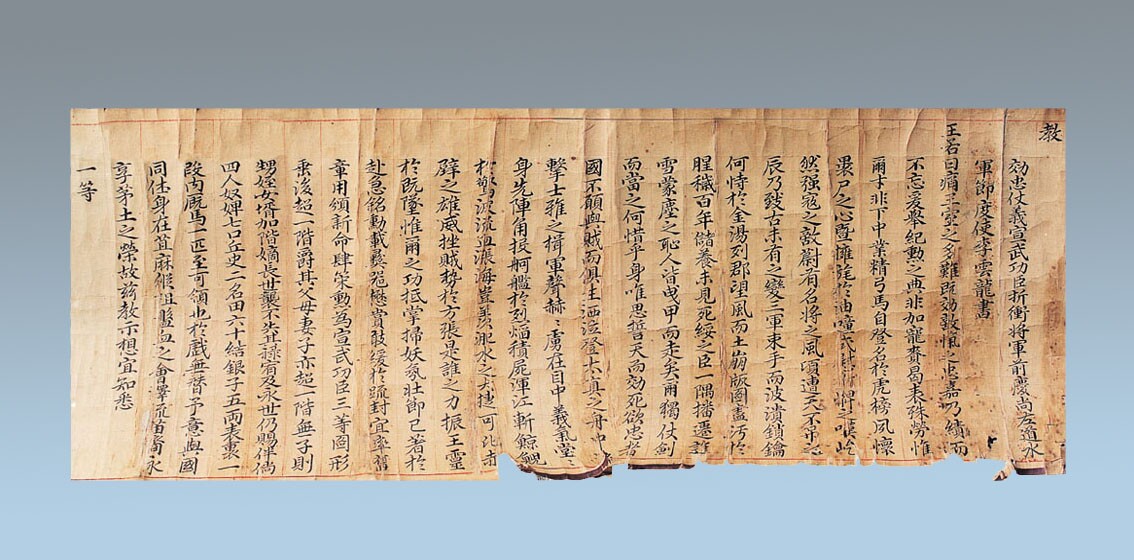 教
効忠仗義宣武功臣折衝將軍前慶尚左道水
軍節度使李雲龍書
王若曰痛王室之多難旣効敵愾之忠嘉乃績而
不忘爰舉紀勳之典非加寵賚曷表殊勞惟
爾才非下中業精弓馬自登名於虎榜夙懷
裹尸之心曁擁旄於
然强寇之敵蔚有名將之風頃遭天不弔
辰乃致古未有之變三軍束手而波潰鎖鑰
何恃於金湯列郡望風而土崩版圖盡汚於
腥穢百年儲養未見死綏之臣一隅播遷
雪蒙塵之恥人皆曳甲而走矣爾獨仗劍
而當之何惜乎身唯思誓天而効死欲忠者
國不顚與賊而俱生洒泣登太眞之舟中
擊士雅之楫軍聲赫々虜在目中義氣堂々
身先陣角㧞舸艦於列焰積屍渾江斬鯨鯢
於驚波流血漲海豈羨淝水之大捷可比赤
壁之雄威挫賊勢於方張是誰之力振王靈
於旣墜惟爾之功抵掌掃妖氛壯節已著於
赴急銘勳載彛器懋賞敢緩於疏封宜率舊
章用頒新命肆策勳爲宣武功臣三等圖形
垂後超一階爵其父母妻子亦超一階無子則
甥姪女壻加階嫡長世襲不失其祿宥及永世仍賜伴倘
四人奴婢七口丘史二名田六十結銀子五兩表裏一
段內廐馬一匹至可領也於戲無替予意與國
同休身在苴麻縱阻盤血之會澤流苗裔永
享茅土之榮故玆敎示想宜知悉
一等